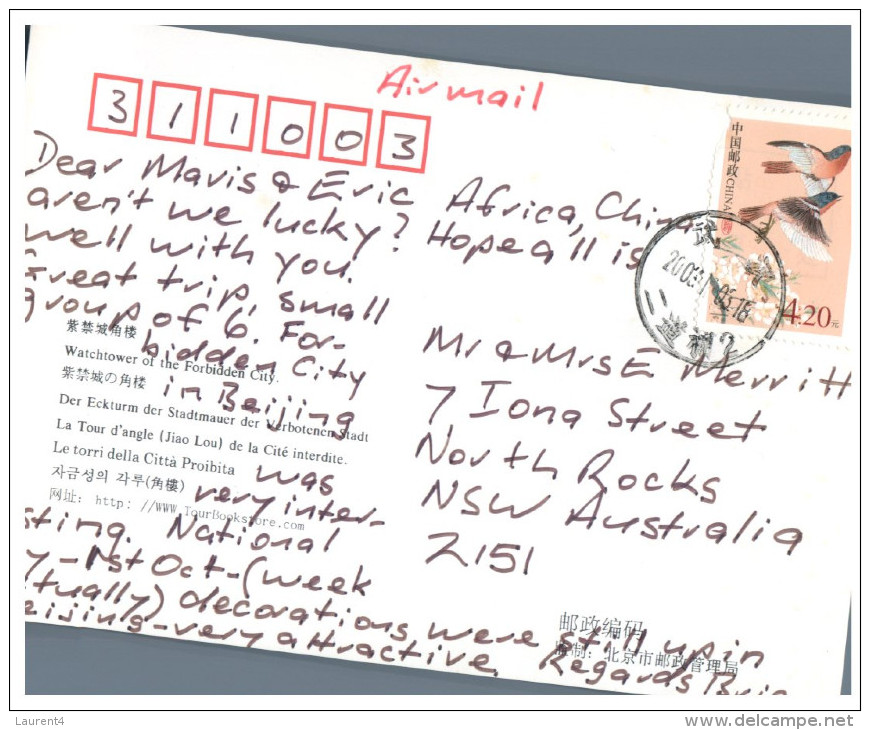 Airmail
311003
中国邮政 CHINA
4.20元
Dear Mavis & Eric Africa, China
aren't we lucky? Hope all is
well with you.
Great trip, small
group of 6. For-
bidden City
in Beijing
was
very inter-
sting. National
y-1st Oct-(week
tually) decorations were still up in
eijing-very attractive. Regards Bri
紫禁城角楼
Watchtower of the Forbidden City.
紫禁城の角楼
Der Eckturm der Stadtmauer der Verbotenen Stadt
La Tour d'angle (Jiao Lou) de la Cité interdite.
Le torri della Città Proibita
자금성의 각루(角樓)
网址: http: //www.TourBookstore.com
Mr & Mrs E Merritt
7 Iona Street
North Rocks
NSW Australia
2151
邮政编码
监制: 北京市邮政管理局
Laurent4
www.delcampe.net